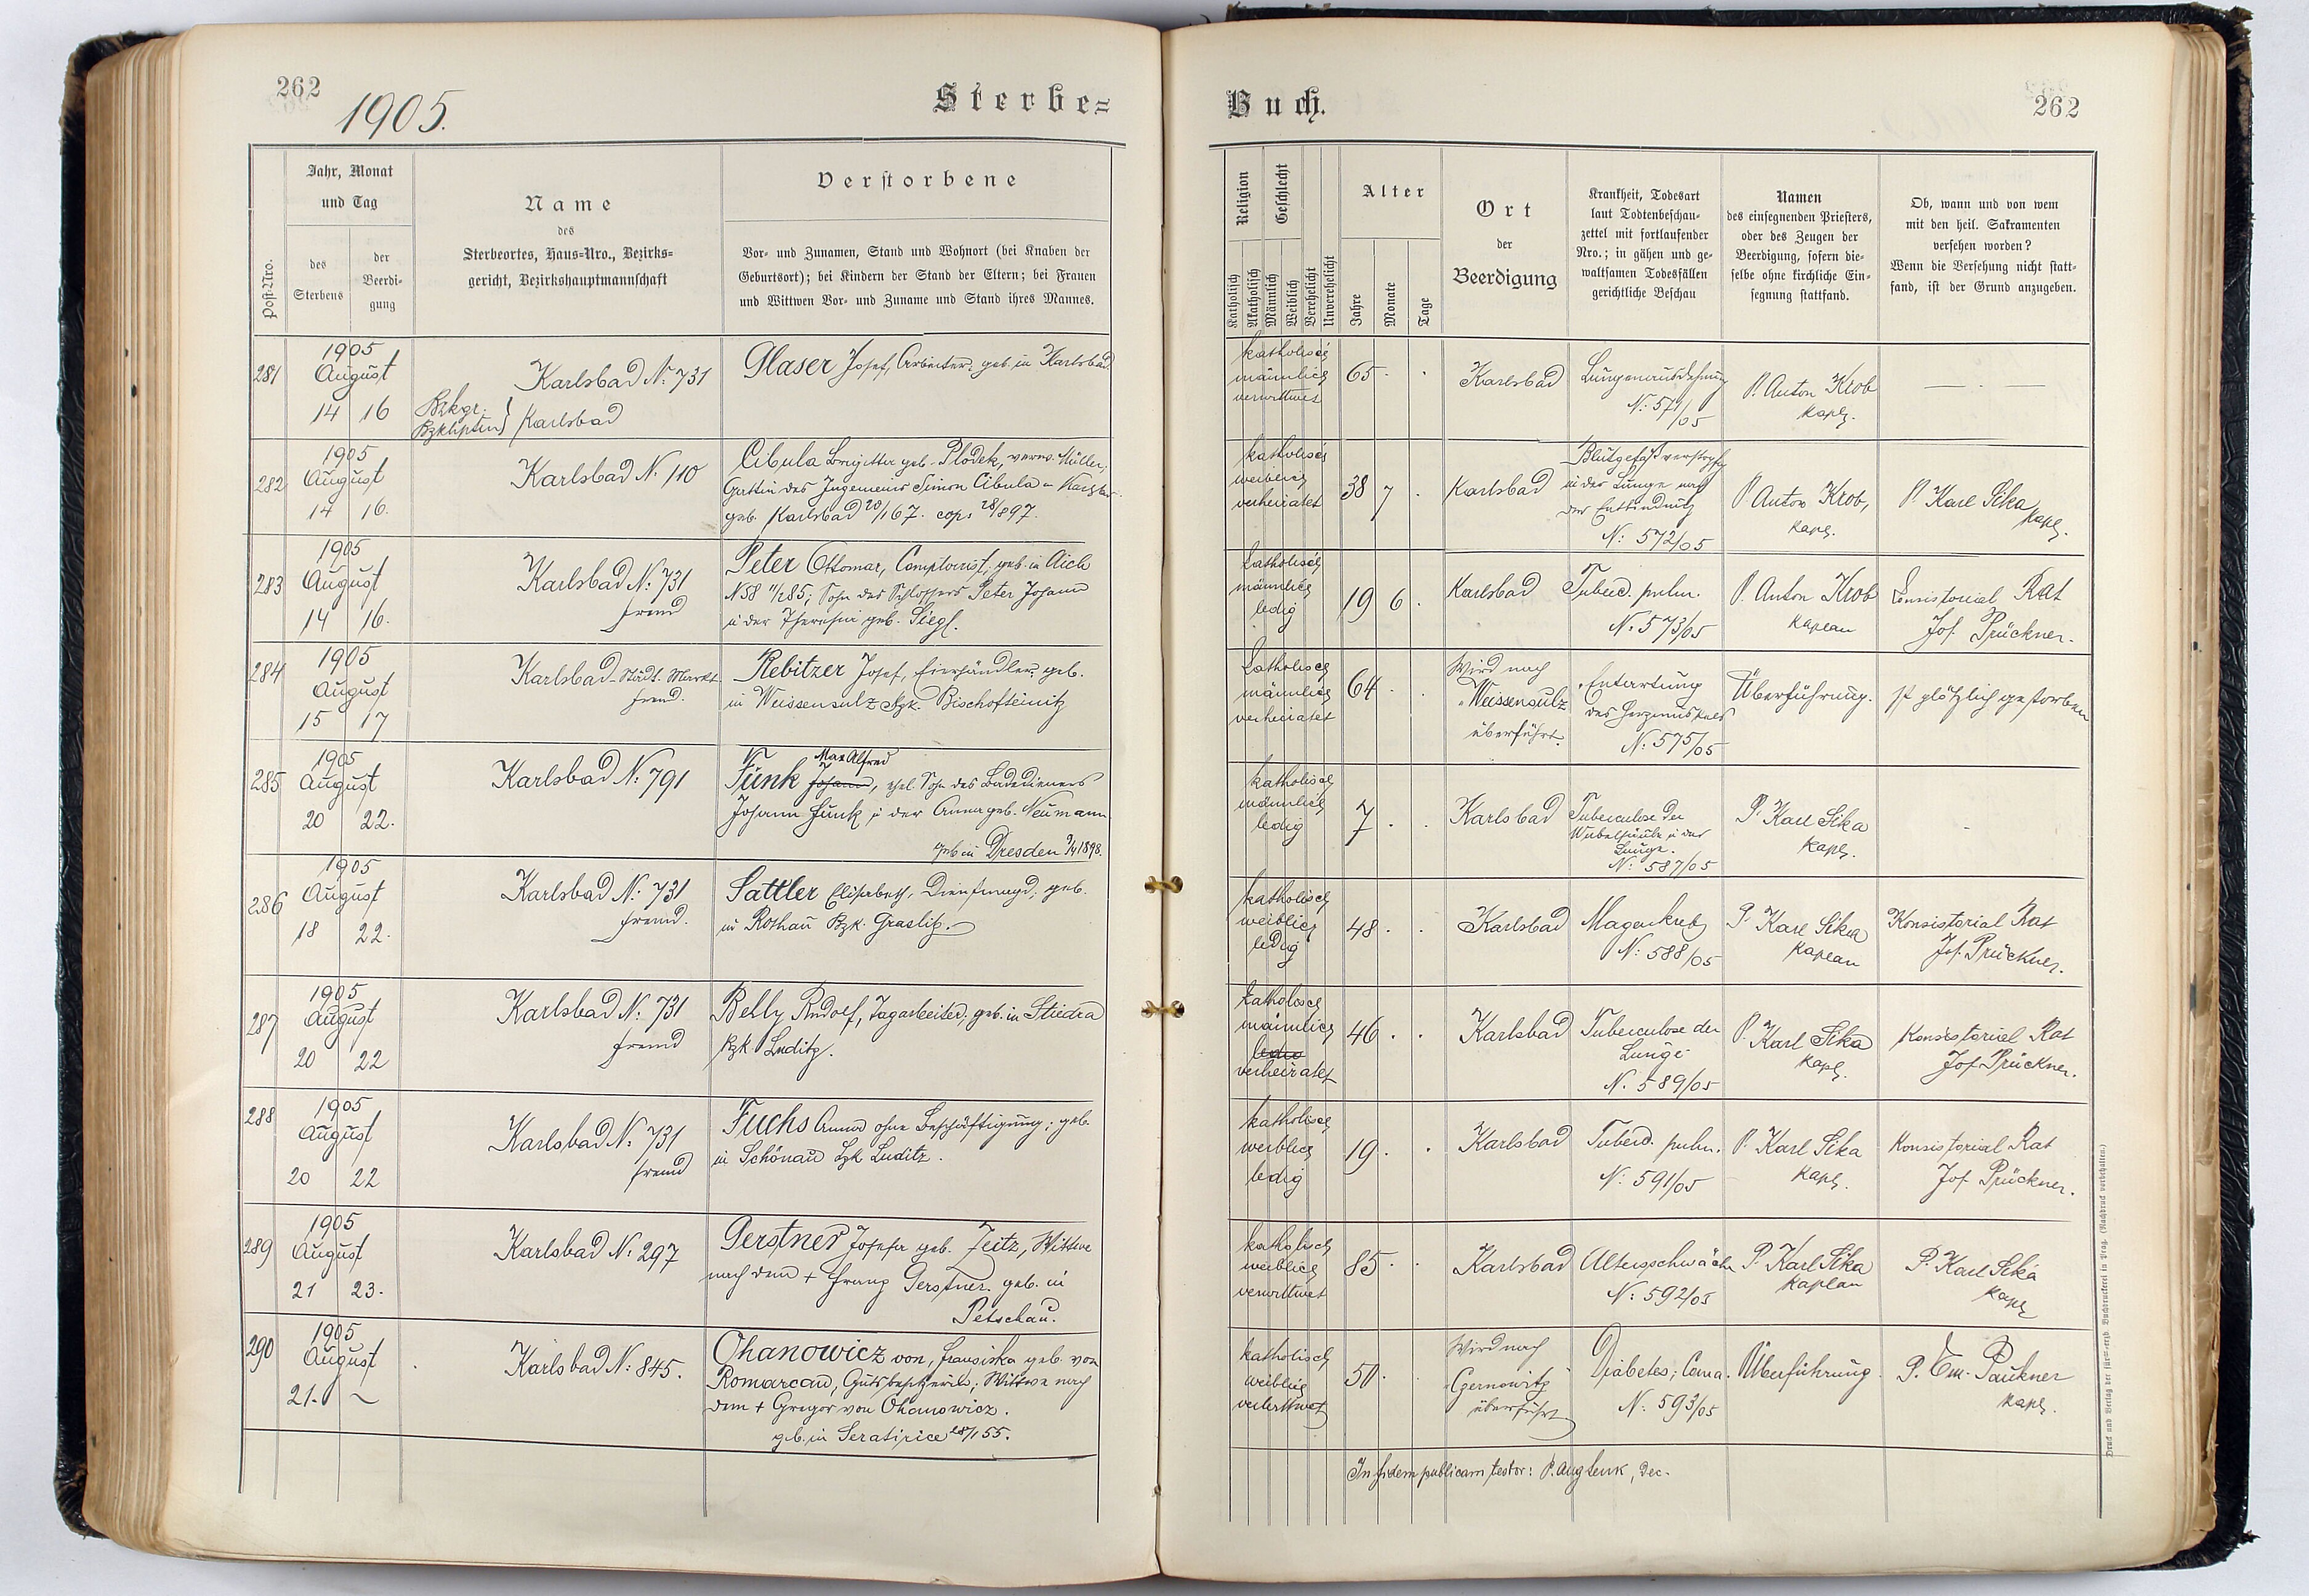 262
1905.
Sterbe=
Post-Nro.
Jahr, Monat
und Tag
des
Sterbens
der
Beerdi-
gung
Name
des
Sterbeortes, Haus=Nro., Bezirks=
gericht, Bezirkshauptmannschaft
Verstorbene
Vor- und Zunamen, Stand und Wohnort (bei Knaben der
Geburtsort); bei Kindern der Stand der Eltern; bei Frauen
und Wittwen Vor- und Zuname und Stand ihres Mannes.
281
1905
August
14 16
Karlsbad N: 731
Bzkgr.
Bzkhptm } Karlsbad
Glaser Josef, Arbeiter; geb. in Karlsbad.
282
1905
August
14 16.
Karlsbad N. 110
Cibula Brigitta geb. Plodek, verw. Müller,
Gattin des Ingenieurs Simon Cibula in Karlsbad
geb. Karlsbad 20/1 67. cop. 28/897.
283
1905
August
14 16.
Karlsbad N: 731
fremd
Peter Ottomar, Comptoirist; geb. in Aich
N 58 11/2 85; Sohn des Schlossers Peter Johann
u der Theresia geb. Siegl.
284
1905
August
15 17
Karlsbad - Städt. Markt
fremd.
Rebitzer Josef, Eierhändler, geb.
in Weissensulz Bzk. Bischofteinitz
285
1905
August
20 22.
Karlsbad N: 791
Max Alfred
Funk Johann, ehel. Sohn des Badedieners
Johann Funk u der Anna geb. Neumann
geb in Dresden 9/4 1898.
286
1905
August
18 22.
Karlsbad N: 731
fremd.
Sattler Elisabeth, Dienstmagd; geb.
in Rothau Bzk. Graslitz.
287
1905
August
20 22
Karlsbad N: 731
fremd
Belly Rudolf, Tagarbeiter; geb. in Stiedra
Bzk. Luditz.
288
1905
August
20 22
Karlsbad N: 731
fremd
Fuchs Anna ohne Beschäftigung; geb.
in Schönau Bzk Luditz.
289
1905
August
21 23.
Karlsbad N: 297
Gerstner Josefa geb. Zeitz, Wittwe
nach dem + Franz Gerstner. geb. in
Petschau.
290
1905
August
21. ~
Karlsbad N: 845.
Ohanowicz von, Franziska geb. von
Romarcan, Gutsbesitzerin; Wittwe nach
dem + Gregor von Ohanowicz.
geb. in Seratipice 28/1 55.
Buch.
262
Religion
Katholisch
Akatholisch
Geschlecht
Männlich
Weiblich
Verehelicht
Unverehelicht
Alter
Jahre
Monate
Tage
Ort
der
Beerdigung
Krankheit, Todesart
laut Todtenbeschau-
zettel mit fortlaufender
Nro.; in gähen und ge-
waltsamen Todesfällen
gerichtliche Beschau
Namen
des einsegnenden Priesters,
oder des Zeugen der
Beerdigung, sofern die-
selbe ohne kirchliche Ein-
segnung stattfand.
Ob, wann und von wem
mit den heil. Sakramenten
versehen worden?
Wenn die Versehung nicht statt-
fand, ist der Grund anzugeben.
katholisch
männlich
verwittwet
65
Karlsbad
Lungenausdehnung
N: 571/05
P. Anton Krob
Kapl.
katholisch
weiblich
verheiratet
38 7
Karlsbad
Blutgefäßverstopfg
in der Lunge nach
der Entbindung
N: 572/05
P. Anton Krob,
Kapl.
P. Karl Sika
Kapl.
katholisch
männlich
ledig
19 6
Karlsbad
Tuberc. pulm.
N. 573/05
P. Anton Krob
Kaplan
Consistorial Rat
Jos. Prückner.
katholisch
männlich
verheiratet
64
Wird nach
Weissensulz
überführt.
Entartung
des Herzmuskels
N: 575/05
Überführung.
ist plötzlich gestorben
katholisch
männlich
ledig
7
Karlsbad
Tuberculose der
Wirbelsäule u der
Lunge.
N: 587/05
P. Karl Sika
Kapl.
katholisch
weiblich
ledig
48
Karlsbad
Magenkrebs
N: 588/05
P. Karl Sika
Kaplan
Konsistorial Rat
Jos. Prückner.
katholisch
männlich
verheiratet
46
Karlsbad
Tuberculose der
Lunge
N. 589/05
P. Karl Sika
Kapl.
Konsistorial Rat
Jos Prückner.
katholisch
weiblich
ledig
19
Karlsbad
Tuberc. pulm.
N: 591/05
P. Karl Sika
Kapl.
Konsistorial Rat
Jos Prückner.
katholisch
weiblich
verwittwet
85
Karlsbad
Altersschwäche
N: 592/05
P. Karl Sika
Kaplan
P. Karl Sika
Kapl
katholisch
weiblich
verwittwet
50
Wird nach
Czernowitz
überführt
Diabetes; Coma.
N: 593/05
Überführung.
P. Em. Paukner
Kapl.
In fidem publicam testor: P. Aug Lenk, Dec.
Druck und Verlag der fürst=erzb. Buchdruckerei in Prag. (Nachdruck vorbehalten.)